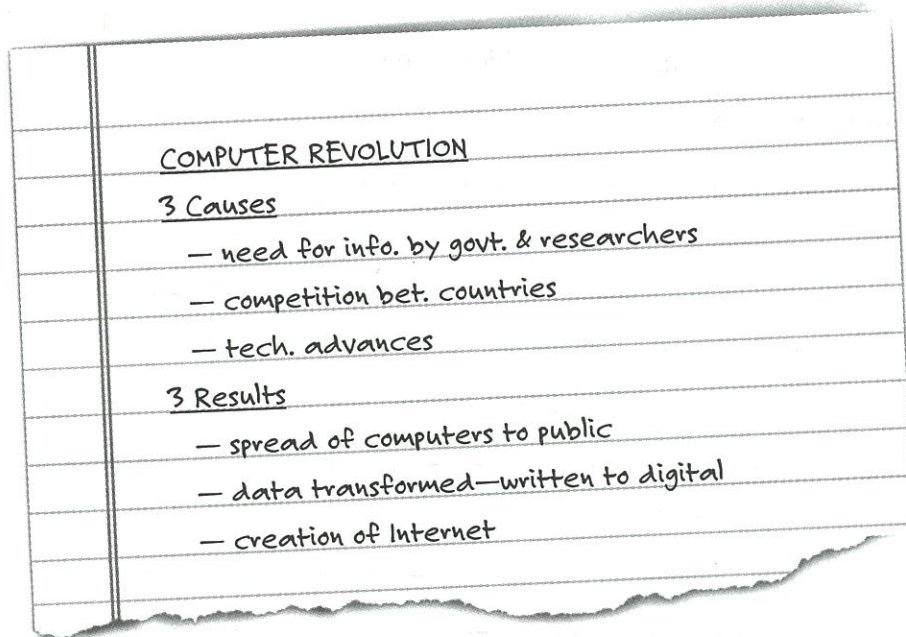 COMPUTER REVOLUTION
3 Causes
— need for info. by govt. & researchers
— competition bet. countries
— tech. advances
3 Results
— spread of computers to public
— data transformed—written to digital
— creation of Internet